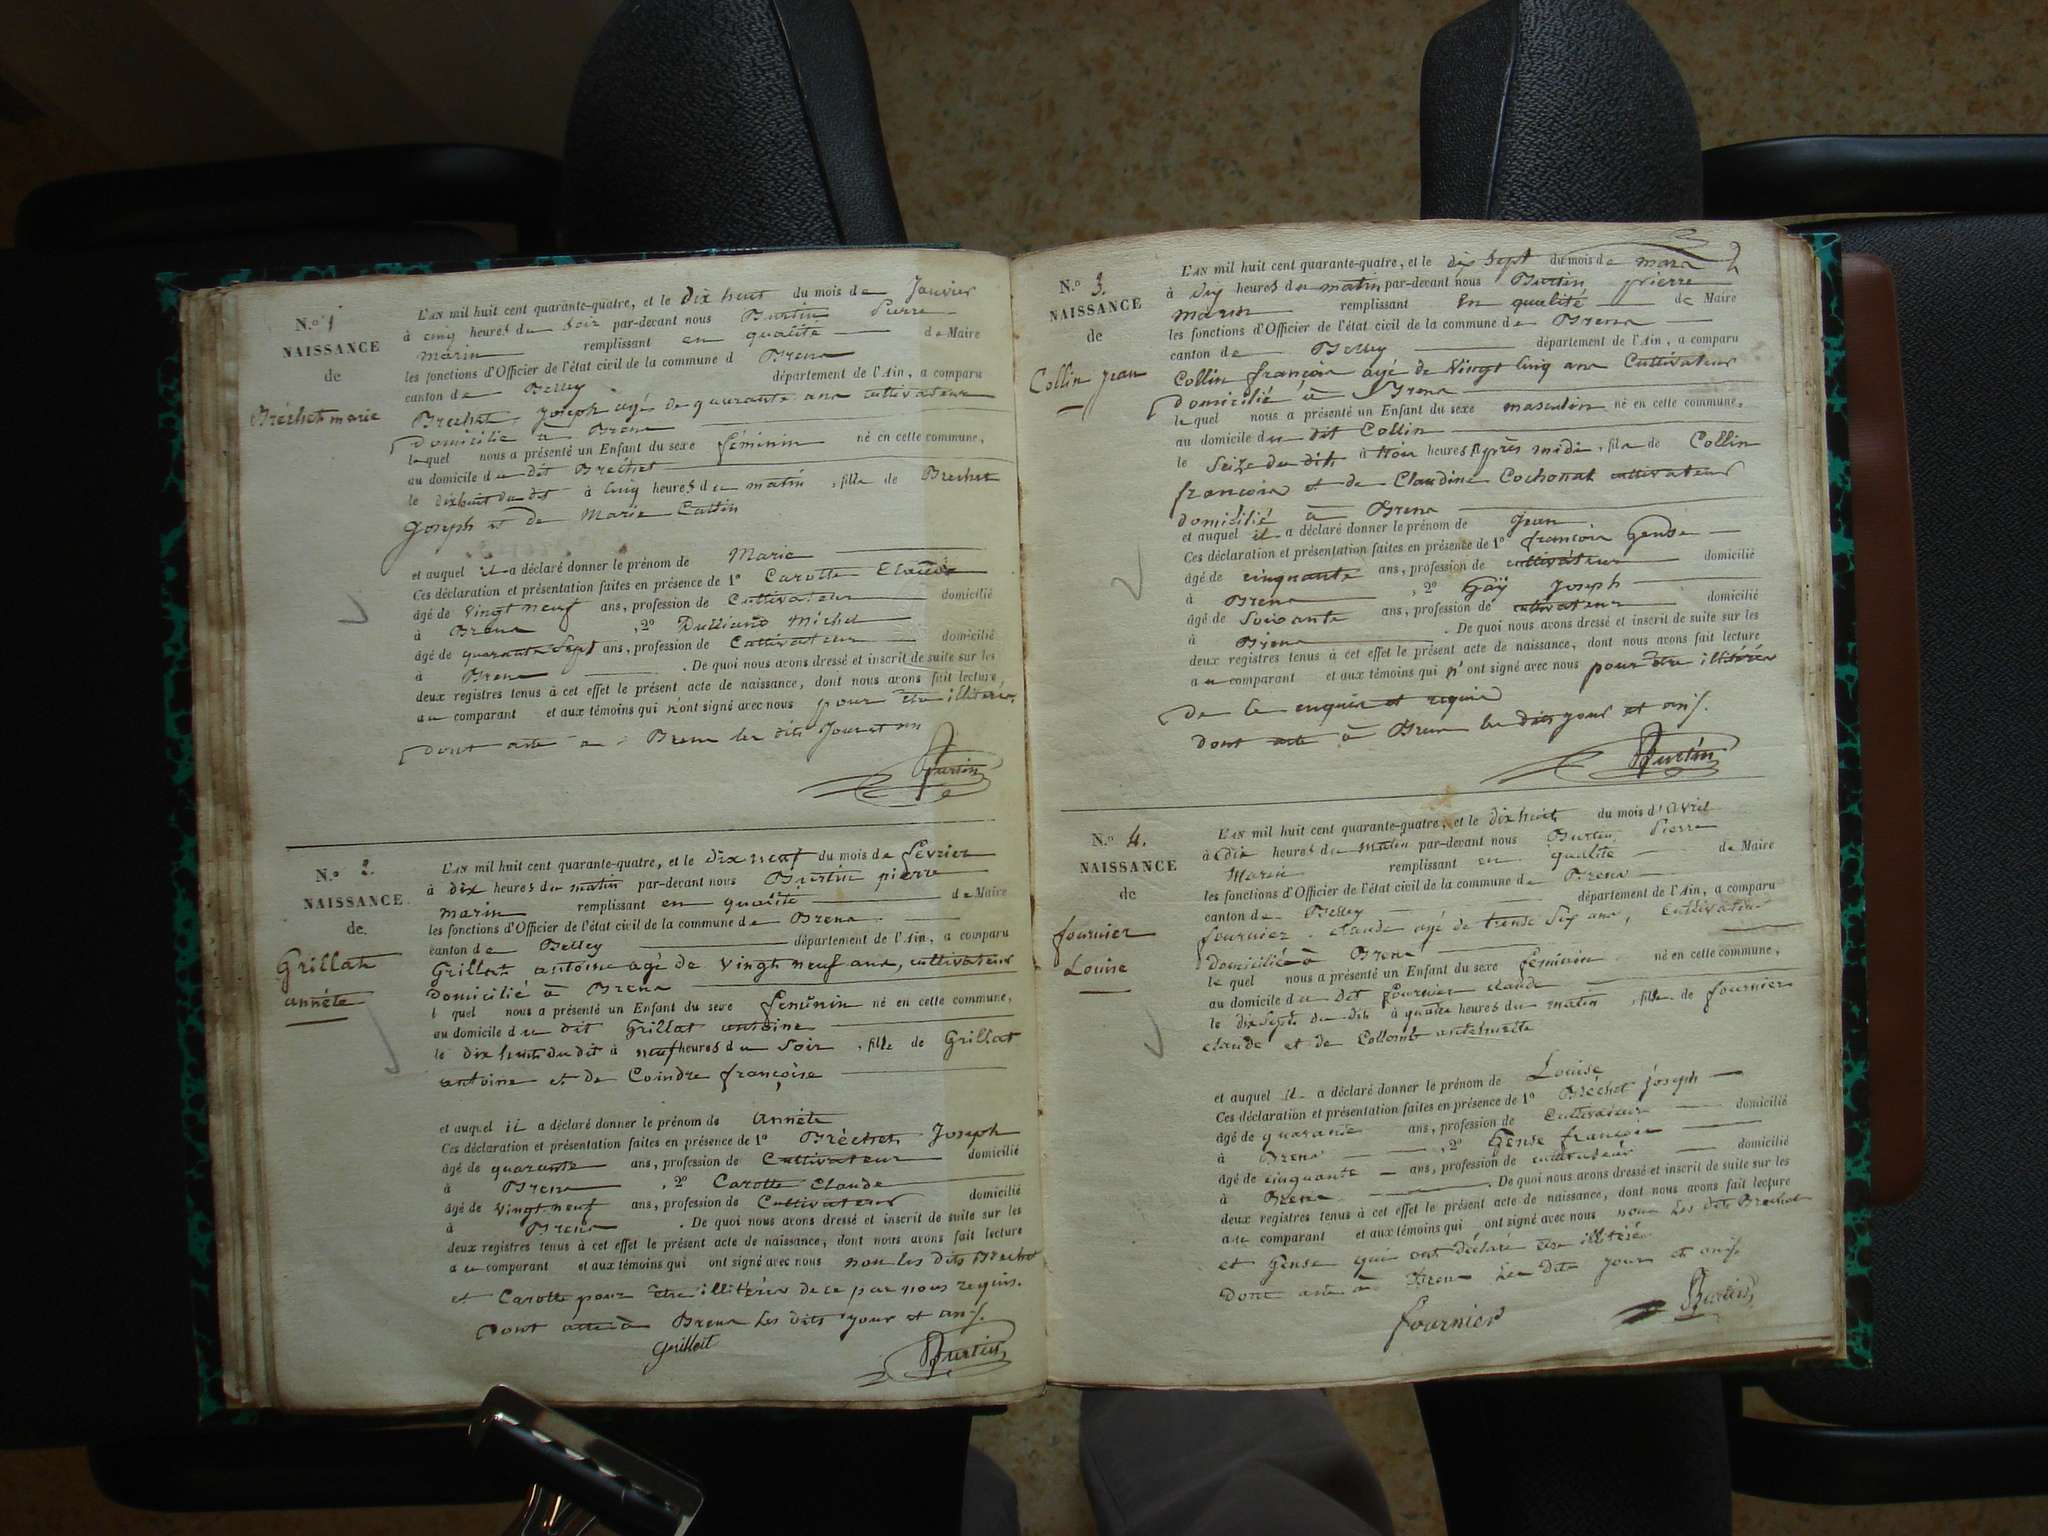 N.o 1
NAISSANCE
de
Bréchet marie
L'AN mil huit cent quarante-quatre, et le dix huit du mois de Janvier
à cinq heures du Soir par-devant nous Burtin Pierre
marin remplissant en qualité de Maire
les fonctions d'Officier de l'état civil de la commune d Brens
canton de Belley département de l'Ain, a comparu
Bréchet Joseph agé de quarante ans cultivateur
domicilié à Brens
lequel nous a présenté un Enfant du sexe féminin né en cette commune,
au domicile du dit Bréchet
le dixhuit du dit à cinq heures du matin, fille de Brechet
Joseph et de Marie Cattin
et auquel il a déclaré donner le prénom de Marie
Ces déclaration et présentation faites en présence de 1o Carotte Claude
âgé de vingt neuf ans, profession de Cultivateur domicilié
à Brens, 2o Michel
âgé de quarante Sept ans, profession de Cultivateur domicilié
à Brens. De quoi nous avons dressé et inscrit de suite sur les
deux registres tenus à cet effet le présent acte de naissance, dont nous avons fait lecture
au comparant et aux témoins qui n'ont signé avec nous pour être illitérés,
dont acte à Brens les dits Jour et an
Burtin
N.o 2.
NAISSANCE
de
Grillat
annéte
L'AN mil huit cent quarante-quatre, et le dix neuf du mois de février
à dix heures du matin par-devant nous Burtin pierre
marin remplissant en qualité de Maire
les fonctions d'Officier de l'état civil de la commune de Brens
canton de Belley département de l'Ain, a comparu
Grillat antoine agé de vingt neuf ans, cultivateur
domicilié à Brens
l quel nous a présenté un Enfant du sexe feminin né en cette commune,
au domicile du dit Grillat antoine
le dix huit du dit à neuf heures du Soir, fille de Grillat
antoine et de Coindre françoise
et auquel il a déclaré donner le prénom de annéte
Ces déclaration et présentation faites en présence de 1o Bréchet Joseph
âgé de quarante ans, profession de Cultivateur domicilié
à Brens, 2o Carotte Claude
âgé de vingt neuf ans, profession de Cultivateur domicilié
à Brens. De quoi nous avons dressé et inscrit de suite sur les
deux registres tenus à cet effet le présent acte de naissance, dont nous avons fait lecture
au comparant et aux témoins qui ont signé avec nous non les dits Brechet
et Carotte pour être illitérés de ce par nous requis.
Dont acte à Brens les dits jour et an
Grillat
Burtin
2
N.o 3.
NAISSANCE
de
Collin jean
L'AN mil huit cent quarante-quatre, et le dix Sept du mois de mars
à dix heures du matin par-devant nous Burtin pierre
marin remplissant en qualité de Maire
les fonctions d'Officier de l'état civil de la commune de Brens
canton de Belley département de l'Ain, a comparu
Collin françois agé de Vingt cinq ans Cultivateur
domicilié à Brens
lequel nous a présenté un Enfant du sexe masculin né en cette commune,
au domicile du dit Collin
le Seize du dit à trois heures Après midi, fils de Collin
françois et de Claudine Cochonat cultivateur
domicilié à Brens
et auquel il a déclaré donner le prénom de Jean
Ces déclaration et présentation faites en présence de 1o françois Gense
âgé de cinquante ans, profession de cultivateur domicilié
à Brens, 2o Gaÿ Joseph
âgé de Soixante ans, profession de cultivateur domicilié
à Brens. De quoi nous avons dressé et inscrit de suite sur les
deux registres tenus à cet effet le présent acte de naissance, dont nous avons fait lecture
au comparant et aux témoins qui n'ont signé avec nous pour être illitérés
de ce enquis et requis
dont acte à Brens les dits jour et an
Burtin
N.o 4.
NAISSANCE
de
fournier
Louise
L'AN mil huit cent quarante-quatre, et le dix huit du mois d'avril
à dix heures du matin par-devant nous Burtin Pierre
Marin remplissant en qualité de Maire
les fonctions d'Officier de l'état civil de la commune de Brens
canton de Belley département de l'Ain, a comparu
fournier claude agé de trente Six ans, Cultivateur
domicilié à Brens
lequel nous a présenté un Enfant du sexe feminin né en cette commune,
au domicile du dit fournier claude
le dix Sept du dit à quatre heures du matin, fille de fournier
claude et de Collomb anthelmette
et auquel il a déclaré donner le prénom de Louise
Ces déclaration et présentation faites en présence de 1o Bréchet joseph
âgé de quarante ans, profession de Cultivateur domicilié
à Brens, 2o Gense françois
âgé de cinquante ans, profession de cultivateur domicilié
à Brens. De quoi nous avons dressé et inscrit de suite sur les
deux registres tenus à cet effet le présent acte de naissance, dont nous avons fait lecture
au comparant et aux témoins qui ont signé avec nous non les dits Brechet
et Gense qui ont déclaré être illitérés
Dont acte à Brens les dits jour et an
fournier
Burtin